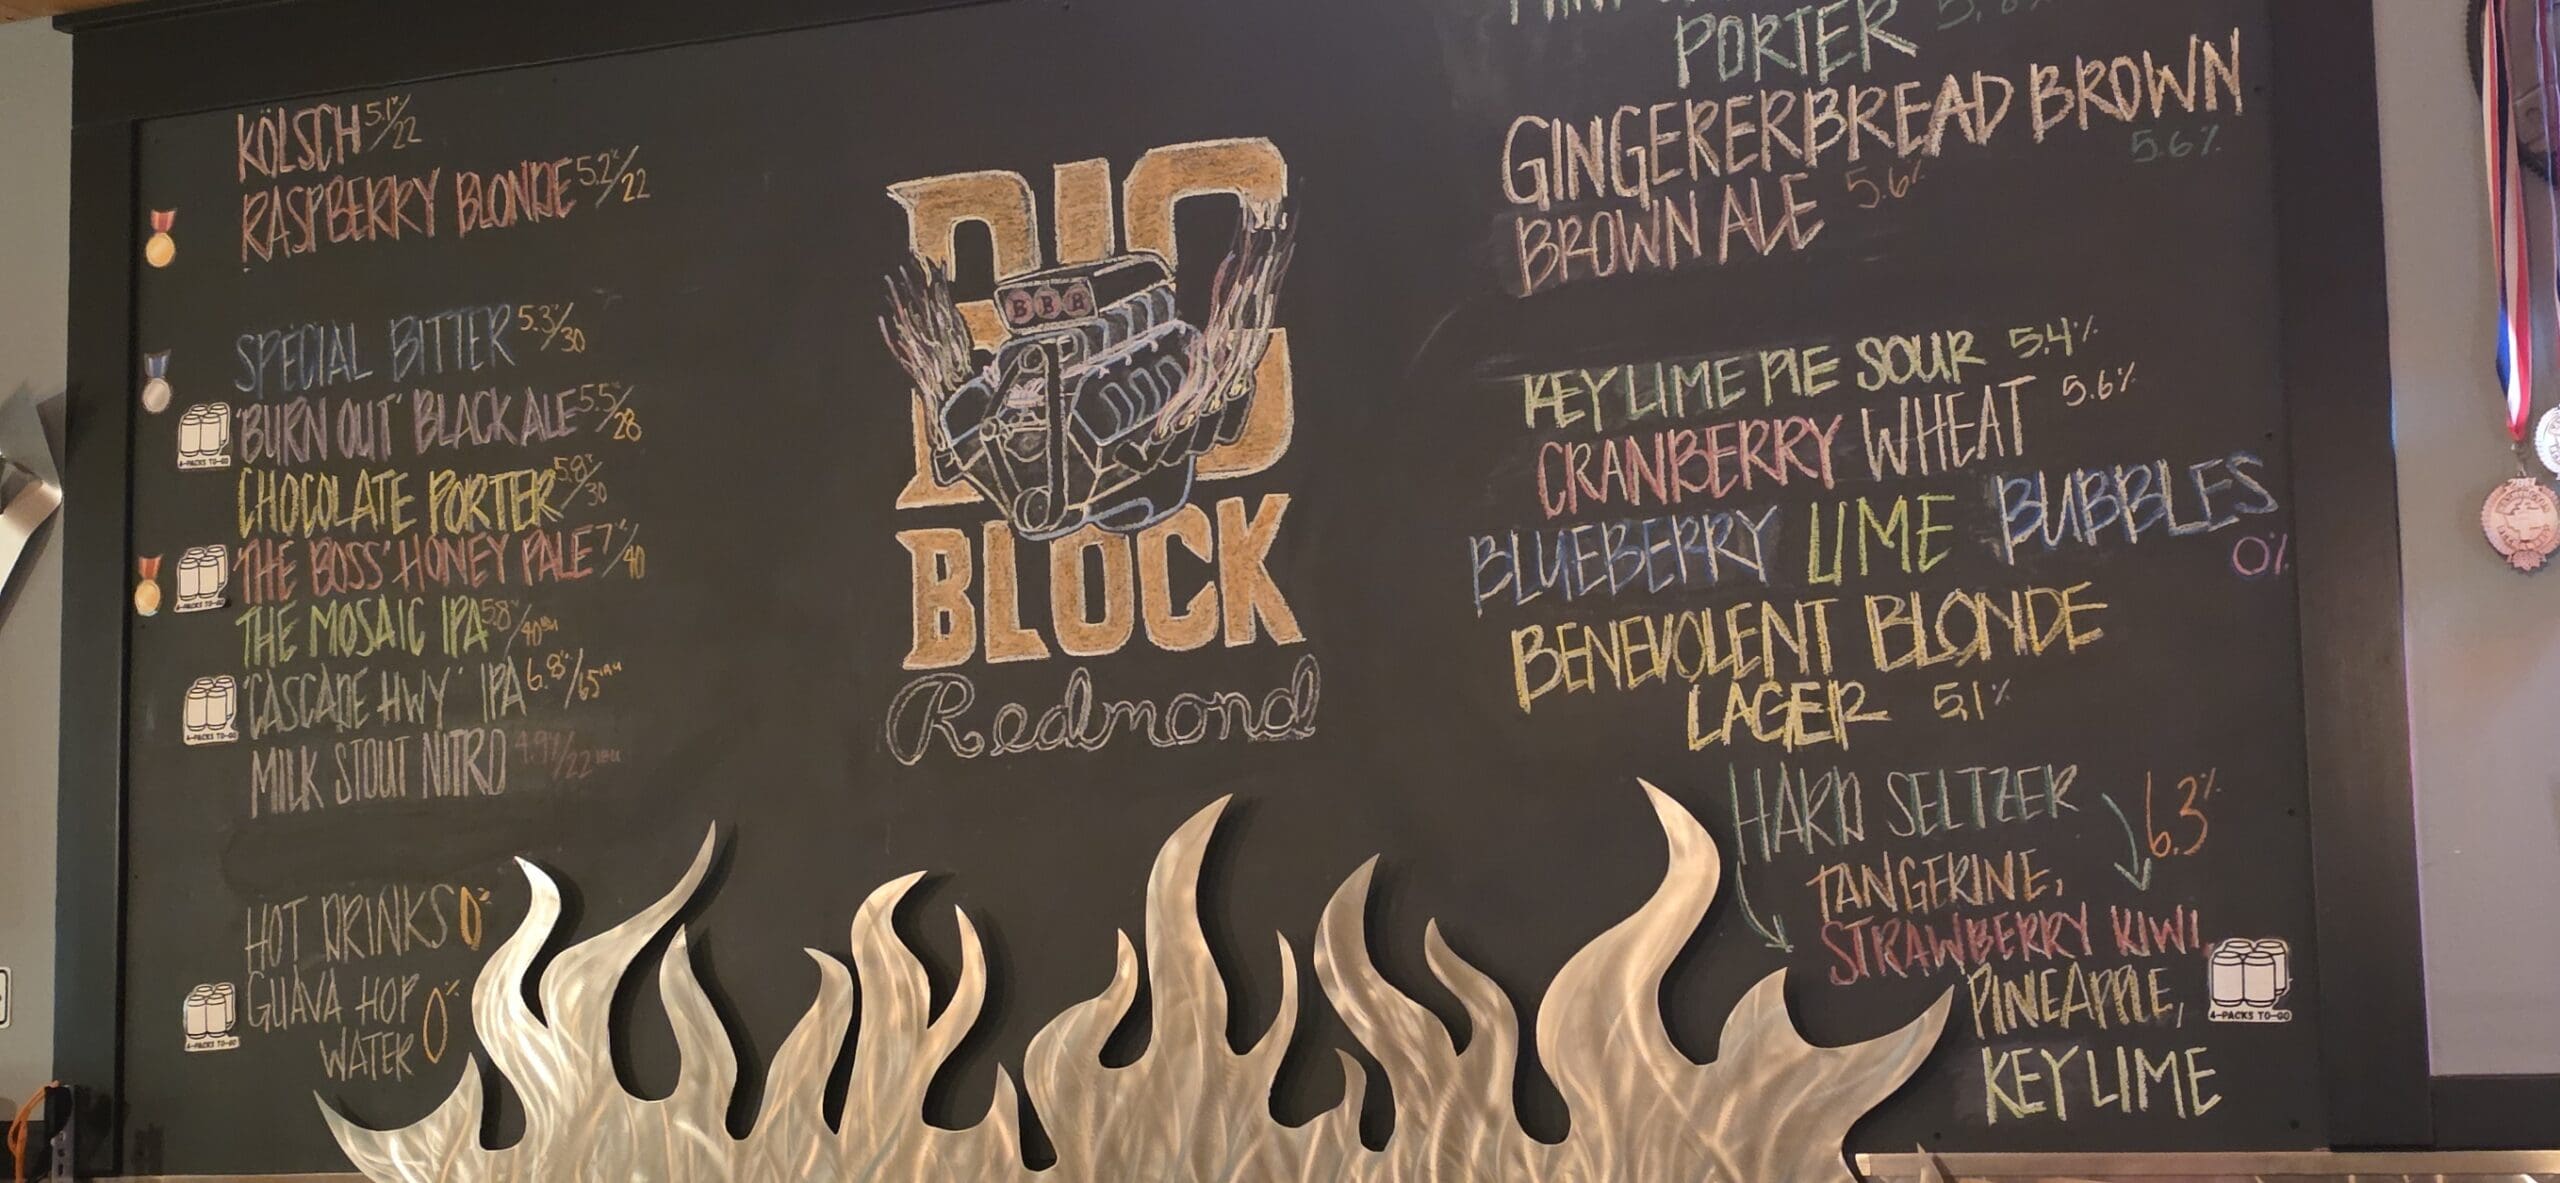 KÖLSCH 5.1%/22
RASPBERRY BLONDE 5.2%/22
SPECIAL BITTER 5.3%/30
'BURN OUT' BLACK ALE 5.5%/28
4-PACKS TO-GO
CHOCOLATE PORTER 5.8%/30
'THE BOSS' HONEY PALE 7%/40
4-PACKS TO-GO
THE MOSAIC IPA 5.8%/40 IBU
'CASCADE HWY' IPA 6.8%/65 IBU
4-PACKS TO-GO
MILK STOUT NITRO 4.9%/22 IBU
HOT DRINKS 0%
GUAVA HOP
WATER 0%
4-PACKS TO-GO
BIG
BBB
BLOCK
Redmond
PORTER 5.8%
GINGERERBREAD BROWN
5.6%
BROWN ALE 5.6%
KEY LIME PIE SOUR 5.4%
CRANBERRY WHEAT 5.6%
BLUEBERRY LIME BUBBLES
0%
BENEVOLENT BLONDE
LAGER 5.1%
HARD SELTZER 6.3%
TANGERINE,
STRAWBERRY KIWI,
PINEAPPLE,
4-PACKS TO-GO
KEY LIME